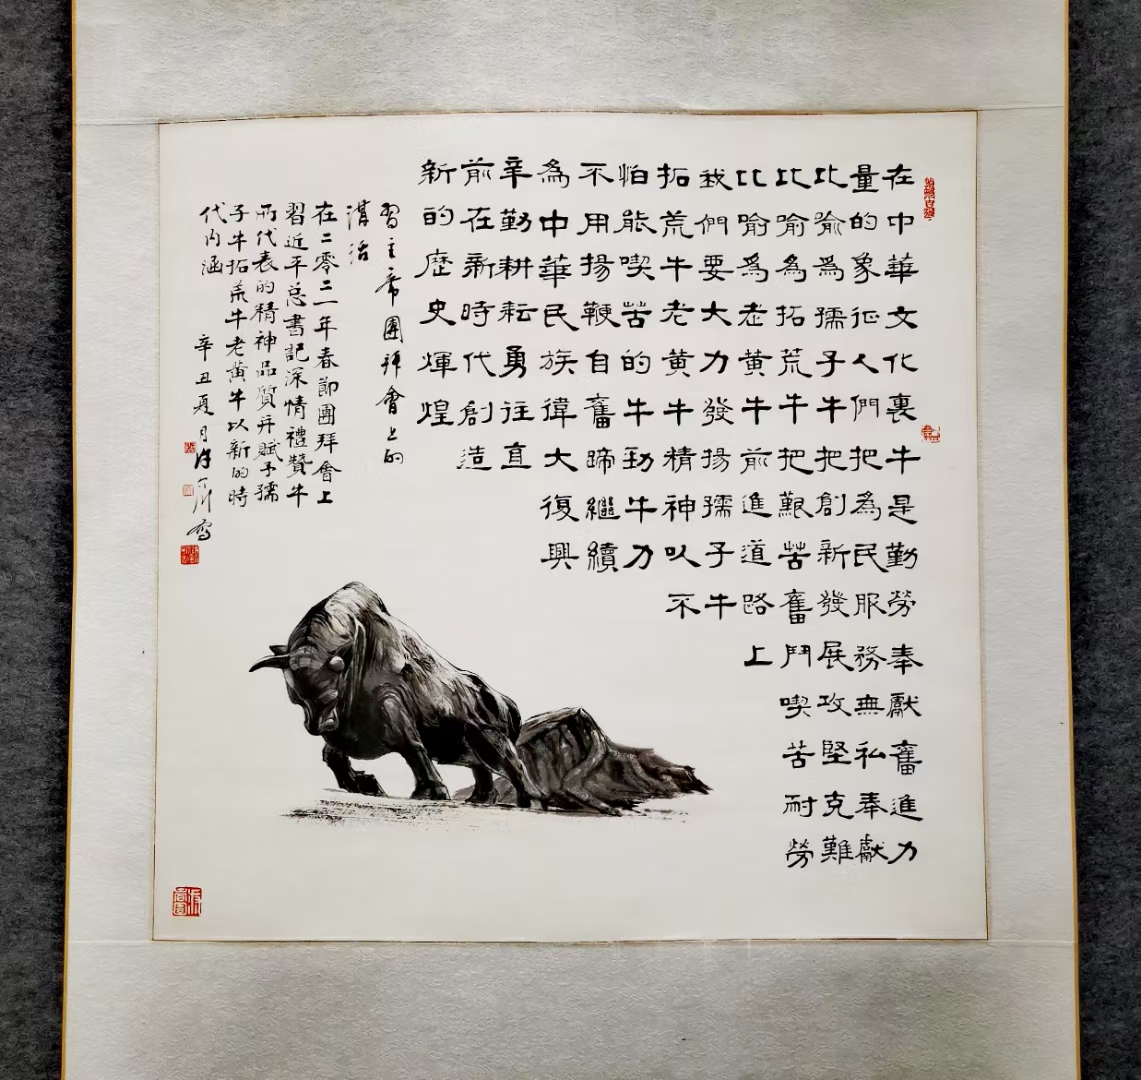 在中華文化裏牛是勤勞奉獻奮進力
量的象征人們把為民服務無私奉獻
比喻為孺子牛把創新發展攻堅克難
比喻為拓荒牛把艱苦奮鬥喫苦耐勞
比喻為老黄牛前進道路上
我們要大力發揚孺子牛
拓荒牛老黄牛精神以不
怕能喫苦的牛勁牛力
不用揚鞭自奮蹄繼續
為中華民族偉大復興
辛勤耕耘勇往直
前在新時代創造
新的歷史輝煌
習主席團拜會上的
講話
在二零二一年春節團拜會上
習近平总書記深情禮贊牛
所代表的精神品質并賦予孺
子牛拓荒牛老黄牛以新的時
代内涵
辛丑夏月